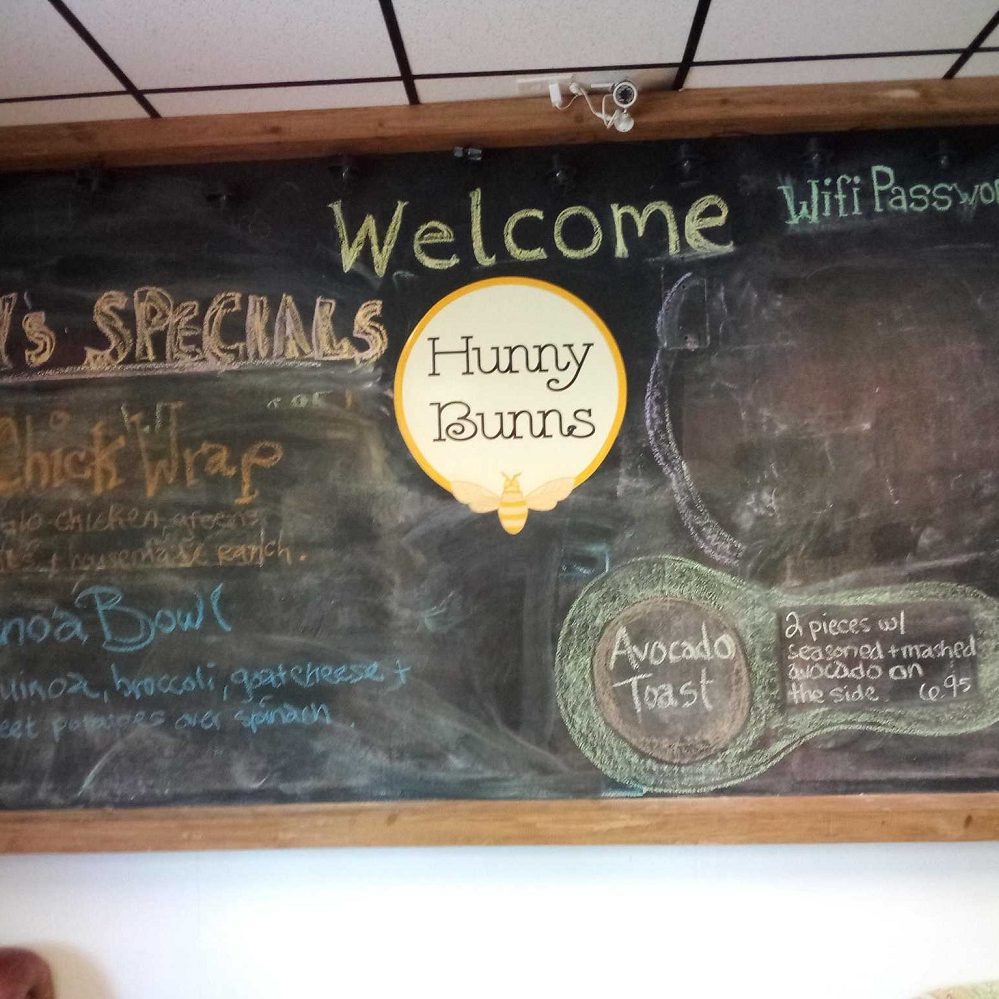 Welcome
Wifi Passwor
's SPECIALS
Hunny
Bunns
Chick Wrap
alo chicken, greens,
+ housemade Ranch.
noa Bowl
uinoa, broccoli, goat cheese +
eet potatoes over spinach.
Avocado
Toast
2 pieces w/
seasoned + mashed
avocado on
the side. 6.95